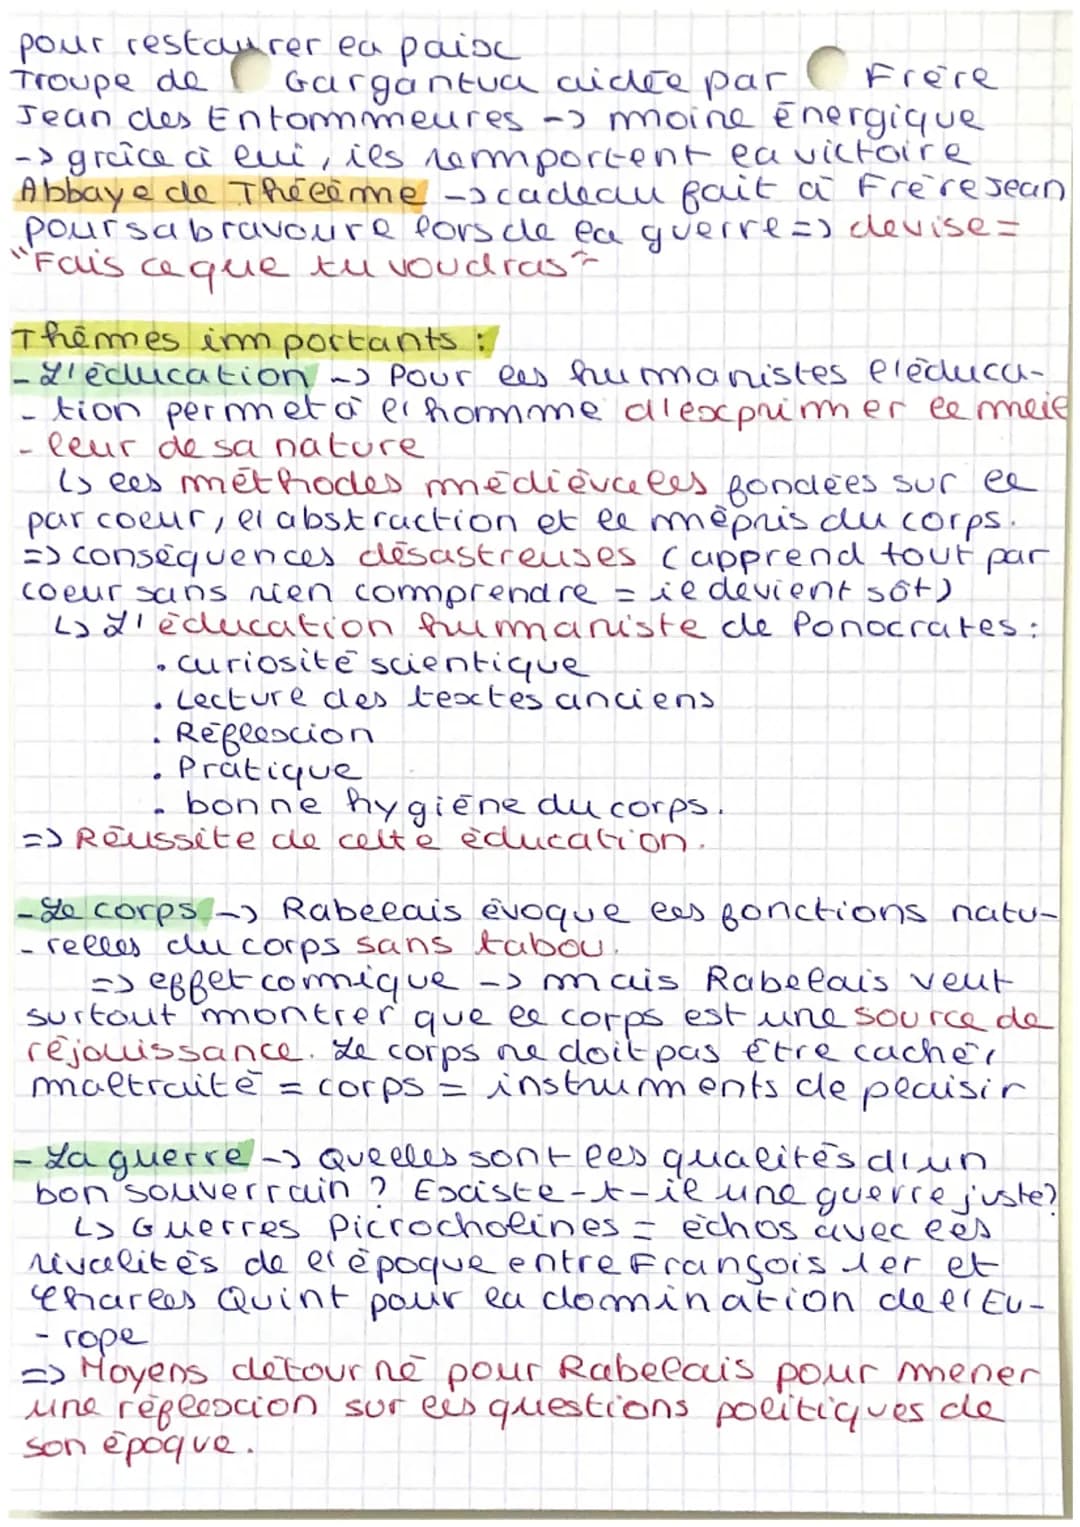 pour restaurer la paix
Troupe de Gargantua aidée par Frère
Jean des Entommeures -> moine énergique
-> grâce à lui, ils remportent la victoire
Abbaye de Thélème -> cadeau fait à Frère Jean
pour sa bravoure lors de la guerre => devise =
"Fais ce que tu voudras"
Thèmes importants :
- L'éducation -> Pour les humanistes l'éduca-
- tion permet à l'homme d'exprimer le meil
- leur de sa nature
↳ les méthodes médiévales fondées sur le
par coeur, l'abstraction et le mépris du corps.
=> conséquences désastreuses (apprend tout par
coeur sans rien comprendre = il devient sôt)
↳ L'éducation humaniste de Ponocrates :
. curiosité scientique
. Lecture des textes anciens
. Réflexion
. Pratique
. bonne hygiène du corps.
=> Réussite de cette éducation.
- Le corps -> Rabelais évoque les fonctions natu-
- relles du corps sans tabou.
=> effet comique -> mais Rabelais veut
surtout montrer que le corps est une source de
réjouissance. Le corps ne doit pas être caché,
maltraité = corps = instruments de plaisir
- La guerre -> Quelles sont les qualités d'un
bon souverrain ? Existe-t-il une guerre juste?
↳ Guerres Picrocholines = échos avec les
rivalités de l'époque entre François 1er et
Charles Quint pour la domination de l'Eu-
- rope
=> Moyens détourné pour Rabelais pour mener
une réflexion sur les questions politiques de
son époque.